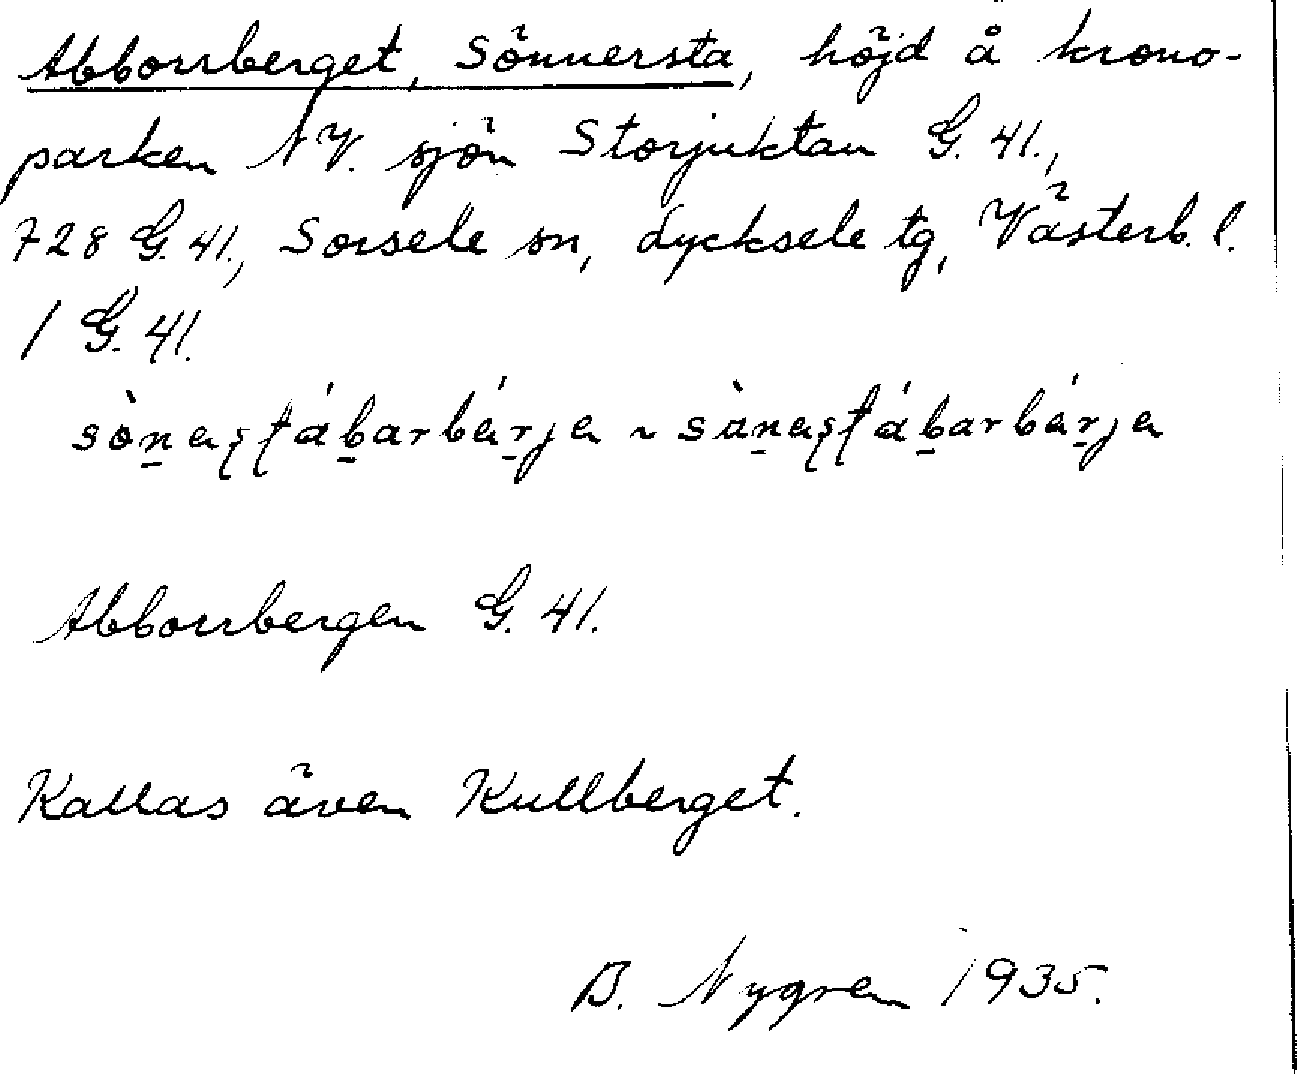 Abborrberget, Sönnersta, höjd å krono-
parken NV. sjön Storjuktan G. 41.,
728 G. 41., Sorsele sn, Lycksele tg, Västerb. l.
/ G. 41.
Abborrbergen G. 41.
Kallas även Kullberget.
B. Nygren 1935.